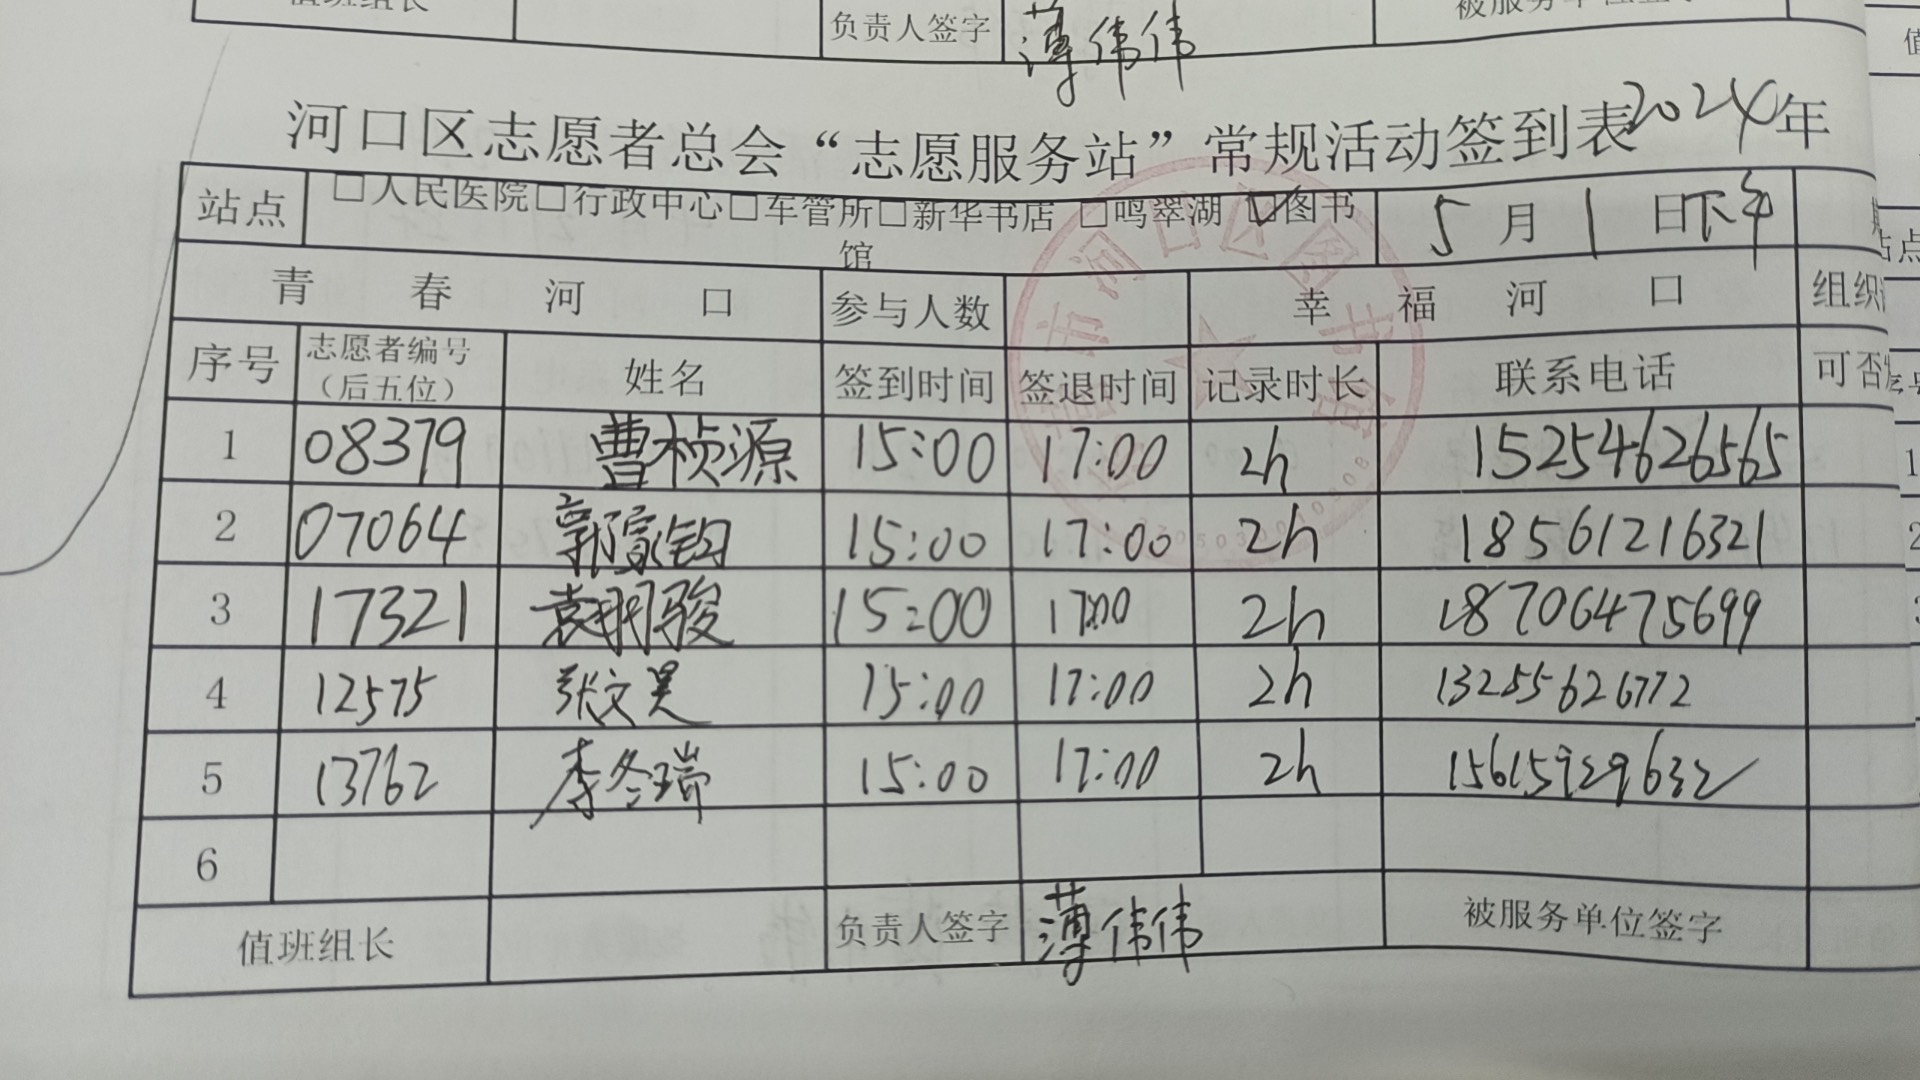 负责人签字 薄伟伟
河口区志愿者总会“志愿服务站”常规活动签到表2024年
站点 □人民医院□行政中心□车管所□新华书店 □鸣翠湖 ☑图书馆 5月1日下午
青春河口 参与人数 幸福河口 组织
序号 志愿者编号（后五位） 姓名 签到时间 签退时间 记录时长 联系电话 可否
1 08379 曹桢源 15:00 17:00 2h 15254626565
2 07064 郭家钧 15:00 17:00 2h 18561216321
3 17321 袁翔骏 15:00 17:00 2h 18706475699
4 12575 张文昊 15:00 17:00 2h 13255626772
5 13762 李冬瑞 15:00 17:00 2h 15615929632
6
值班组长 负责人签字 薄伟伟 被服务单位签字